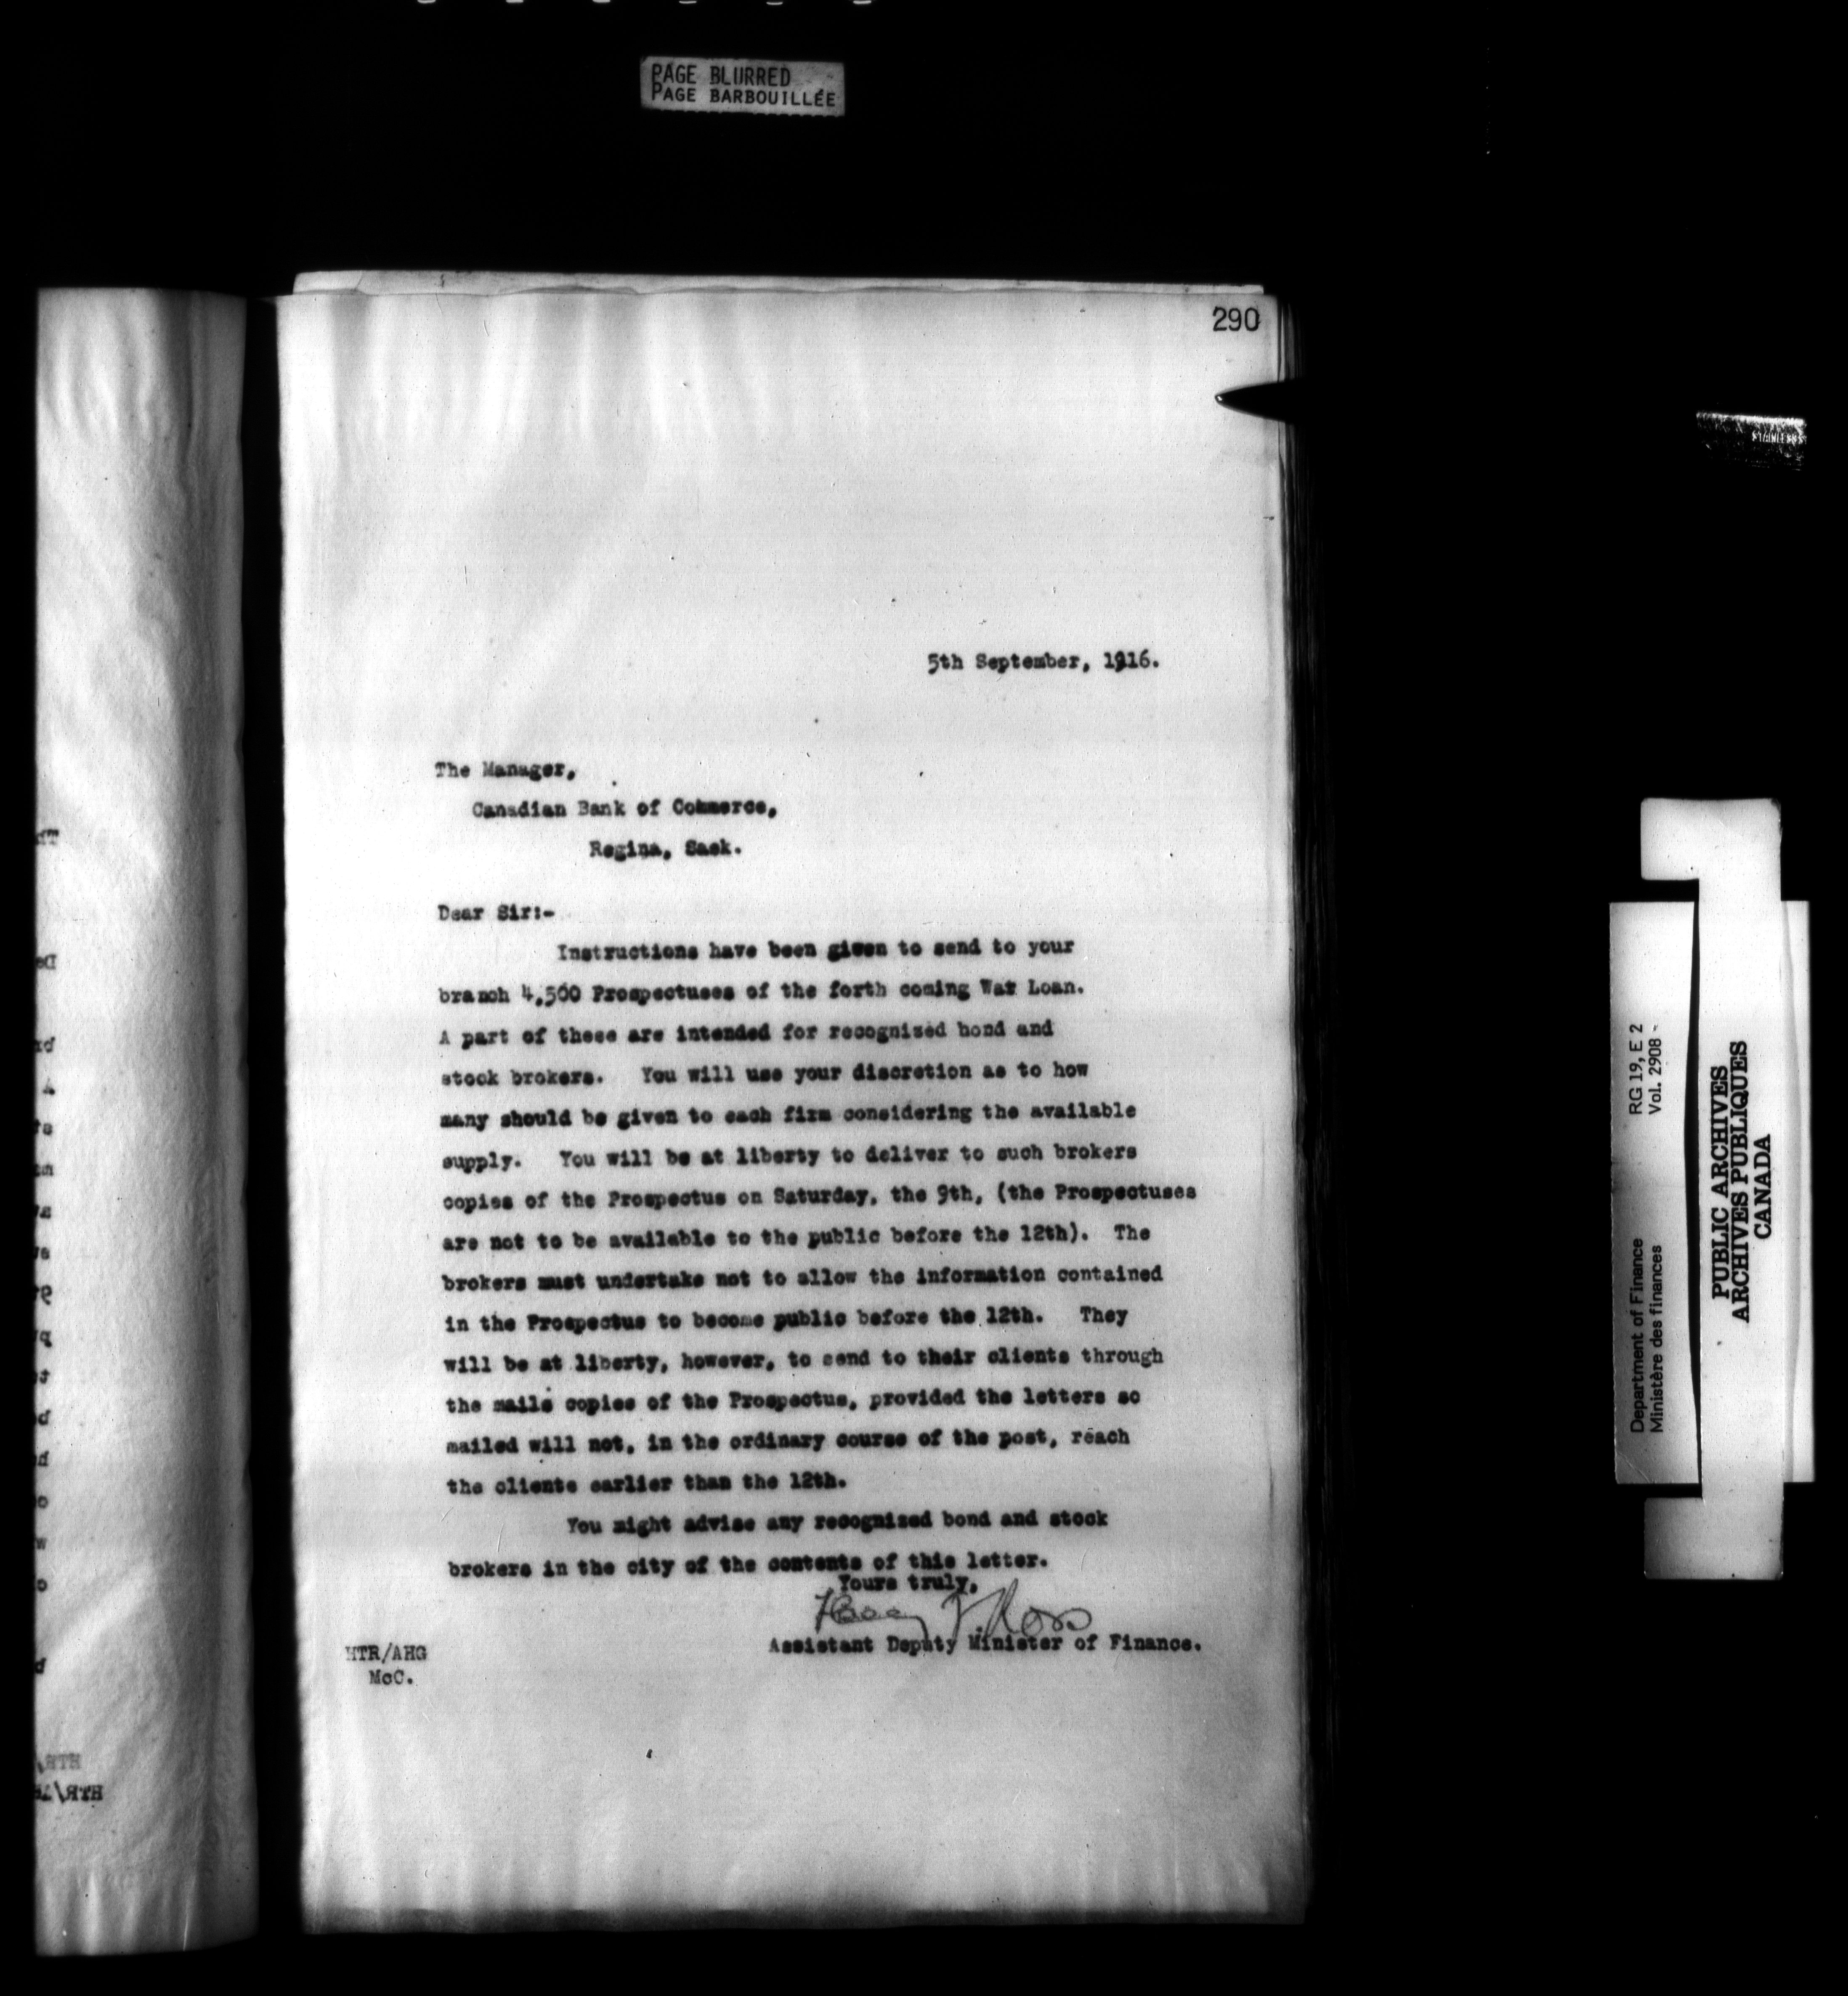 PAGE BLURRED
PAGE BARBOUILLÉE
290
5th September, 1916.
The Manager,
Canadian Bank of Commerce,
Regina, Sask.
Dear Sir:-
Instructions have been given to send to your
branch 4,500 Prospectuses of the forth coming War Loan.
A part of these are intended for recognized bond and
stock brokers. You will use your discretion as to how
many should be given to each firm considering the available
supply. You will be at liberty to deliver to such brokers
copies of the Prospectus on Saturday, the 9th, (the Prospectuses
are not to be available to the public before the 12th). The
brokers must undertake not to allow the information contained
in the Prospectus to become public before the 12th. They
will be at liberty, however, to send to their clients through
the mails copies of the Prospectus, provided the letters so
mailed will not, in the ordinary course of the post, reach
the clients earlier than the 12th.
You might advise any recognized bond and stock
brokers in the city of the contents of this letter.
Yours truly,
Assistant Deputy Minister of Finance.
HTR/AHG
McC.
Department of Finance RG 19, E 2
Ministère des finances Vol. 2908 -
PUBLIC ARCHIVES
ARCHIVES PUBLIQUES
CANADA